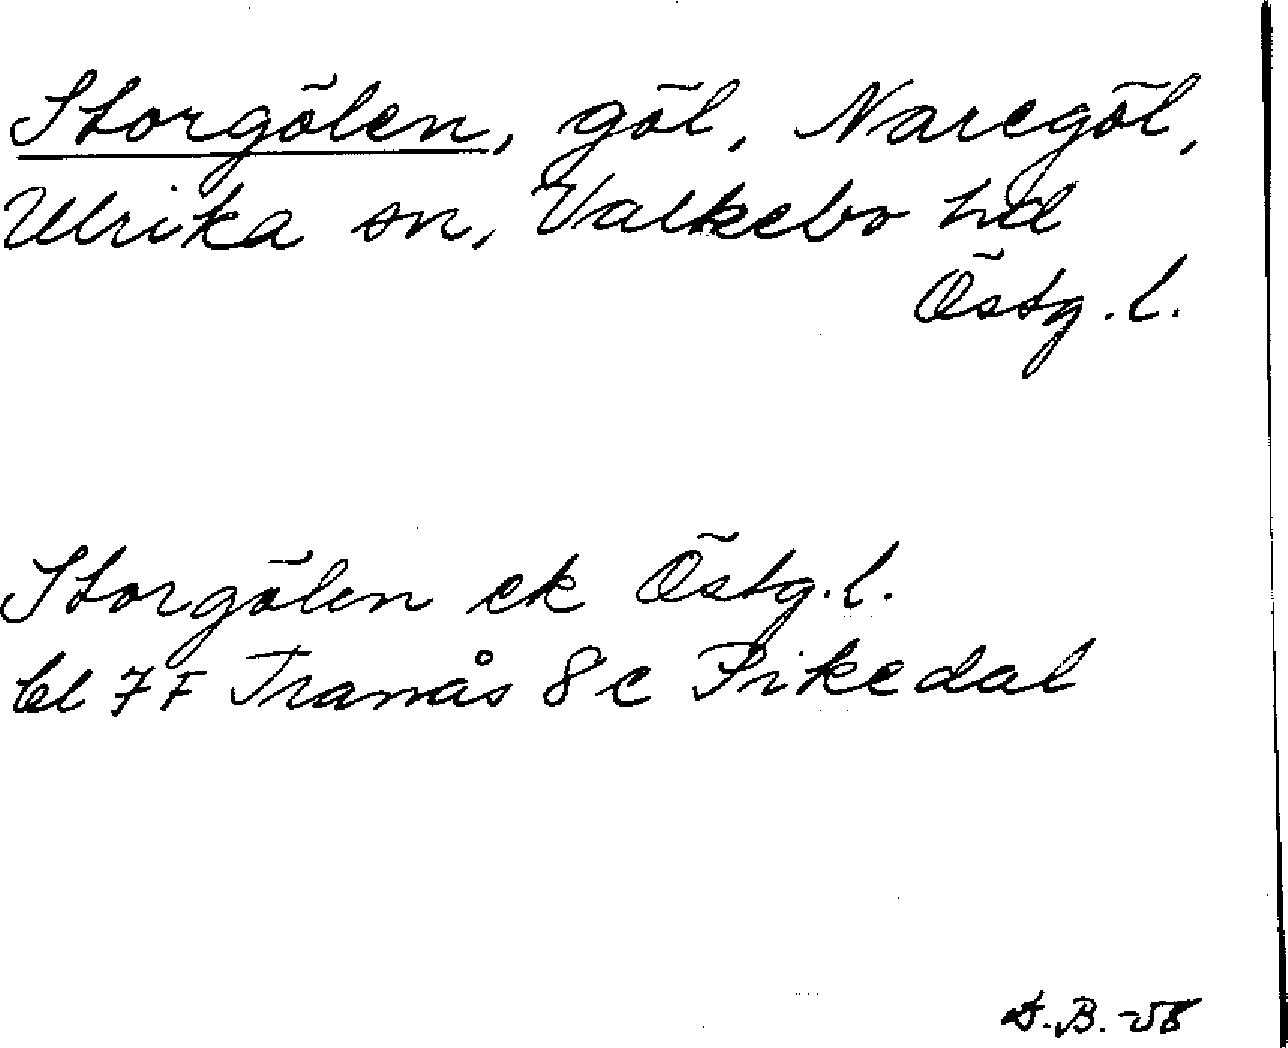 Storgölen, göl, Naregöl,
Ulrika sn, Valkebo hd
Östg. l.
Storgölen ek Östg. l.
bl 7F Tranås 8c Pikedal
D.B. -58